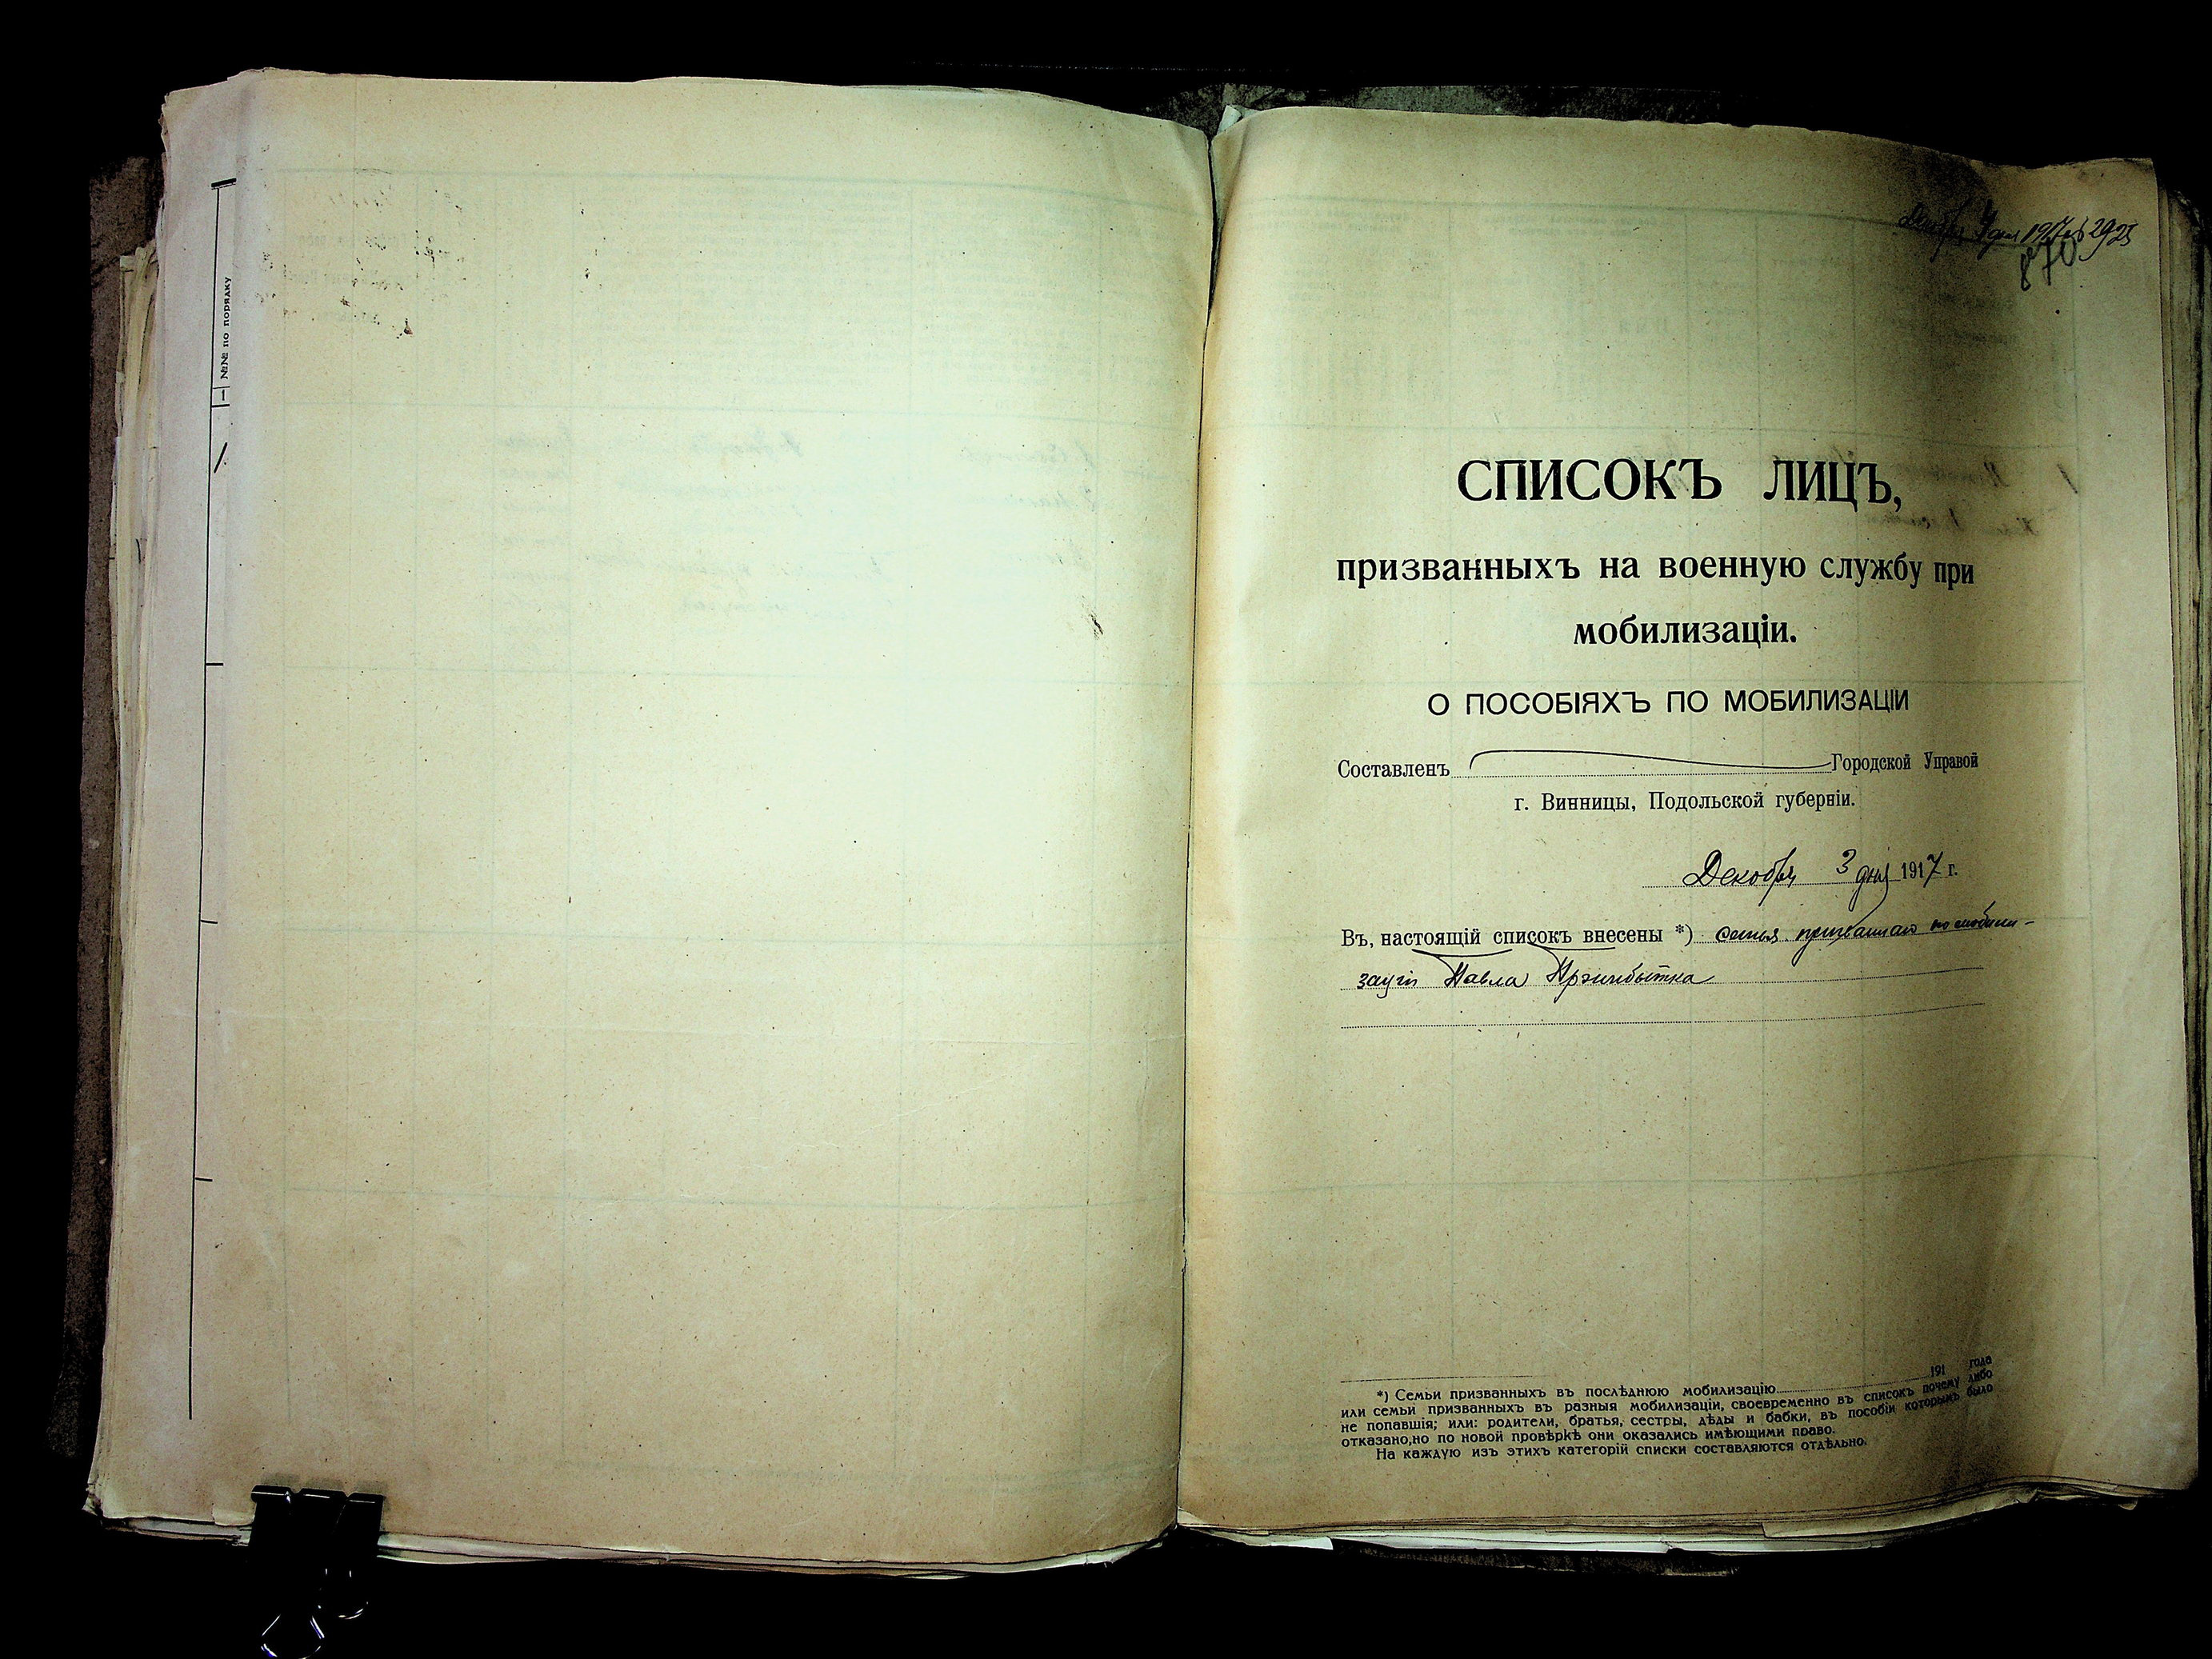 №№ по порядку
1
Декабря 4 дня 1917 г. № 2925
870
СПИСОКЪ ЛИЦЪ,
призванныхъ на военную службу при
мобилизаціи.
О ПОСОБІЯХЪ ПО МОБИЛИЗАЦІИ
Составленъ Городской Управой
г. Винницы, Подольской губерніи.
Декабря 3 дня 1917 г.
Въ, настоящій списокъ внесены *) семья призваннаго по мобили-
заціи Павла Пржибытка
*) Семьи призванныхъ въ послѣднюю мобилизацію 191 года
или семьи призванныхъ въ разныя мобилизаціи, своевременно въ списокъ почему либо
не попавшія; или: родители, братья, сестры, дѣды и бабки, въ пособіи которымъ было
отказано,но по новой провѣркѣ они оказались имѣющими право.
На каждую изъ этихъ категорій списки составляются отдѣльно.